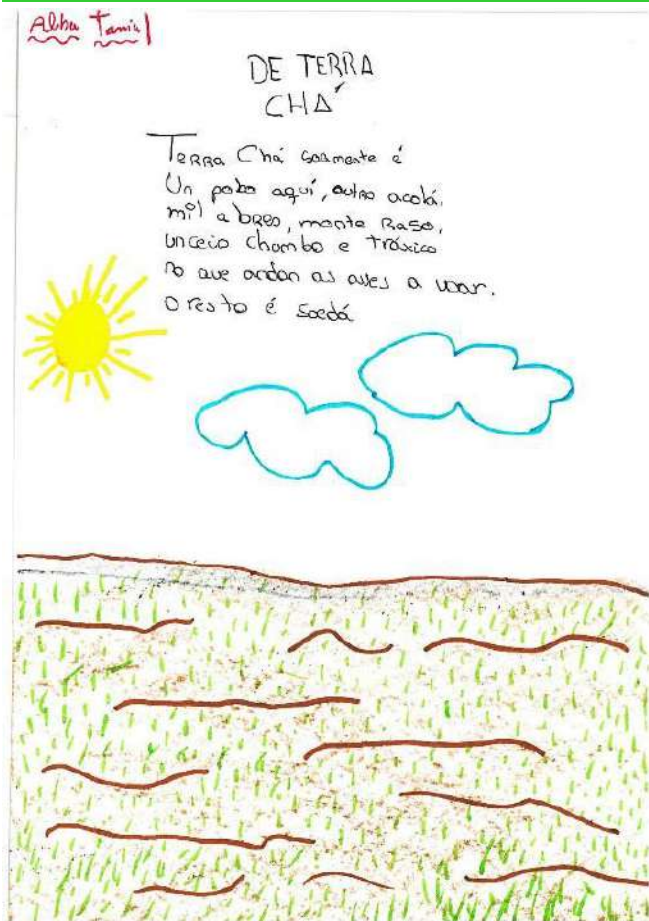 Alba Tania
DE TERRA
CHÁ
TERRA Chá soamente é
Un pobo aquí, outro acolá,
mil abres, monte Raso,
un ceio chombo e tráxico
no que andan as aves a voar.
O resto é soedá